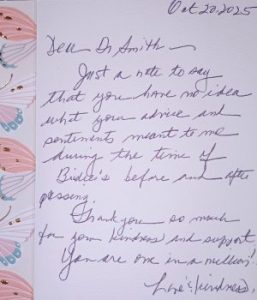 Oct 20, 2025
Dear Dr Smith —
Just a note to say
that you have no idea
what your advice and
sentiments meant to me
during the time of
Birdie's before and after
passing.
Thank you so much
for your kindness and support
You are one in a million!
Love & kindness,